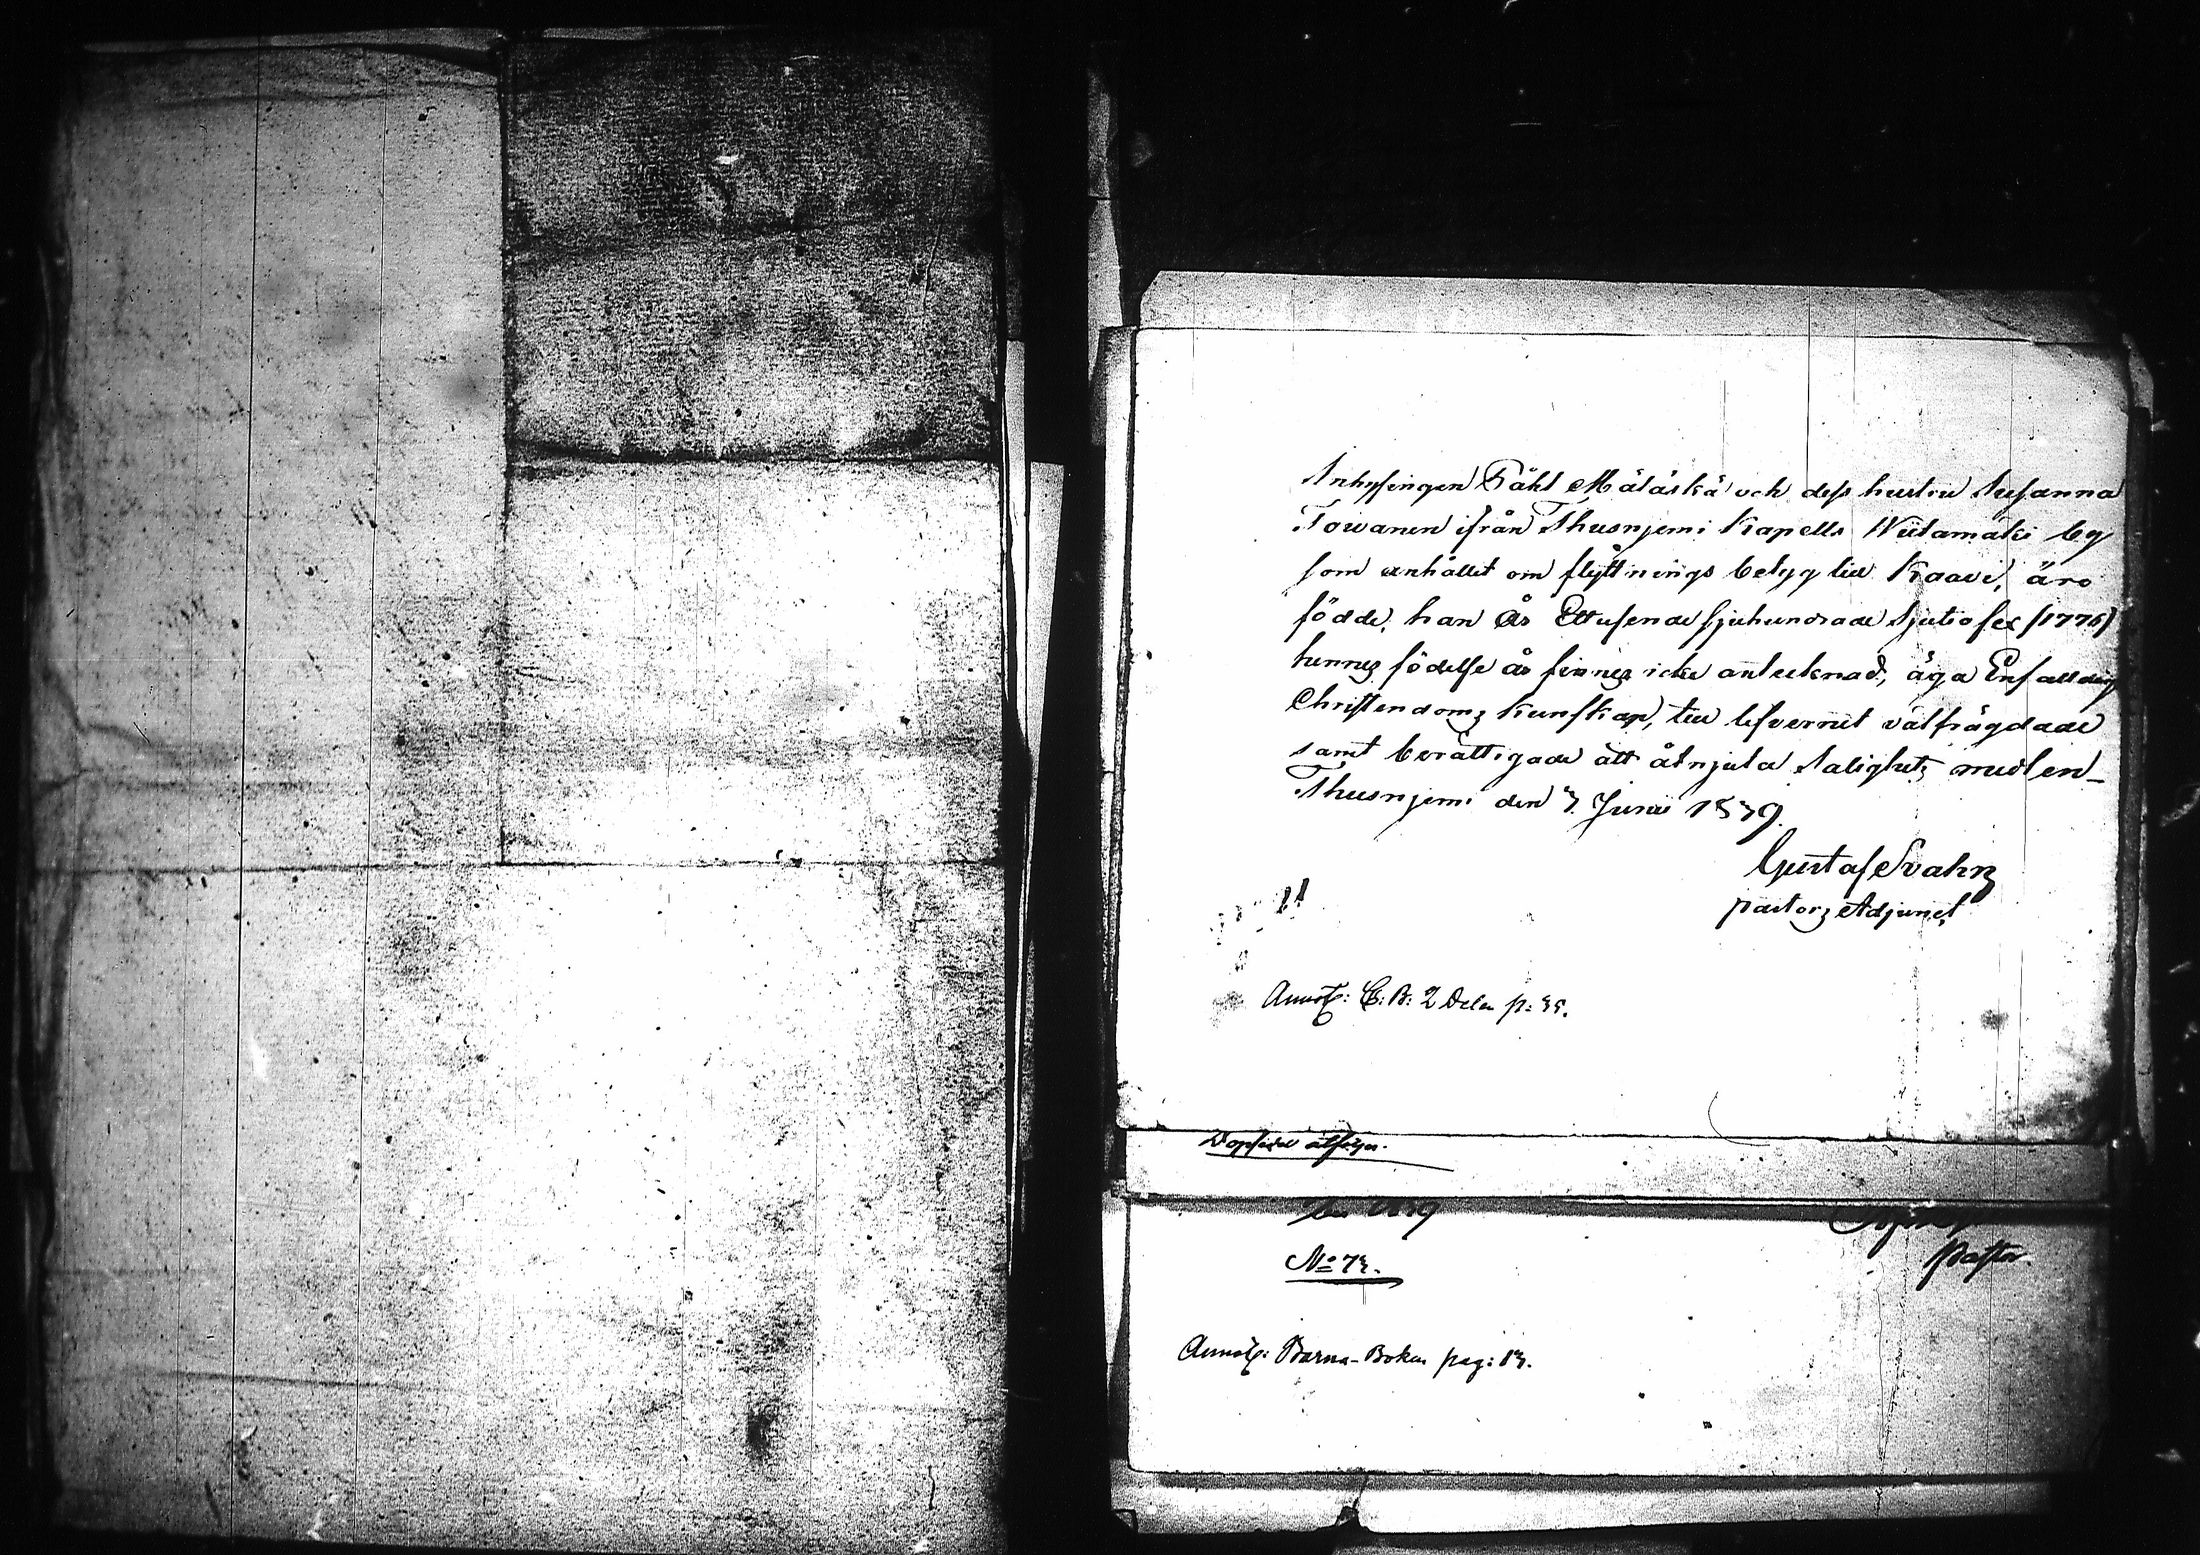 Inhysingen Påhl Mäläskä och dess hustru Susanna
Towanen ifrån Thusnjemi Kapells Wiitamäki by
som anhållit om flyttnings betyg till Kaavi, äro
födde, han År Ettusende sjuhundrade Sjutiosex (1776)
hennes födelse år finnes icke antecknad, äga Enfaldig
Christendoms kunskap, till lefvernet välfrägdade
samt berättigade att åtnjuta Salighets medlen_
Thusnjemi den 3. Junii 1839.
Gustaf Svahn
pastors Adjunct
Annot: C: B: 2 Delen p: 35.
Dopsedel åtföljer.
1839
No 73.
Pastor.
Annot: Barna-Boken pag: 13.